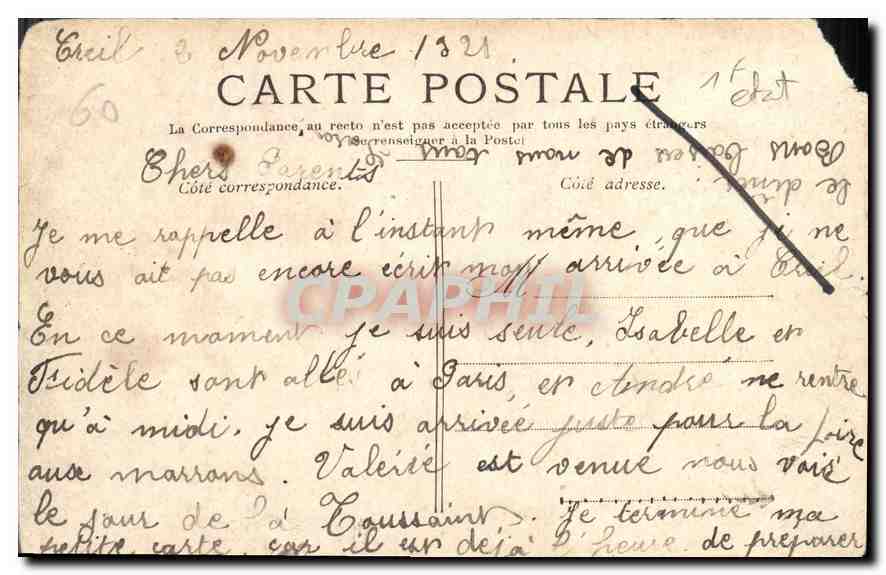 Creil 2 Novembre 1921
CARTE POSTALE
1F
état
60
La Correspondance au recto n'est pas acceptée par tous les pays étrangers
Se renseigner à la Poste
Bons baisers de nous tous
le diner
Chers Parents
Côté correspondance.
Côté adresse.
Je me rappelle à l'instant même, que je ne
vous ait pas encore écrit mon arrivée à Creil.
CPAPHIL
En ce moment je suis seule, Isabelle et
Fidèle sont allés à Paris, et André ne rentre
qu'à midi. je suis arrivée juste pour la foire
aux marrons. Valérie est venue nous voir
le jour de la Toussaint. Je termine ma
petite carte, car il est déjà l'heure de préparer